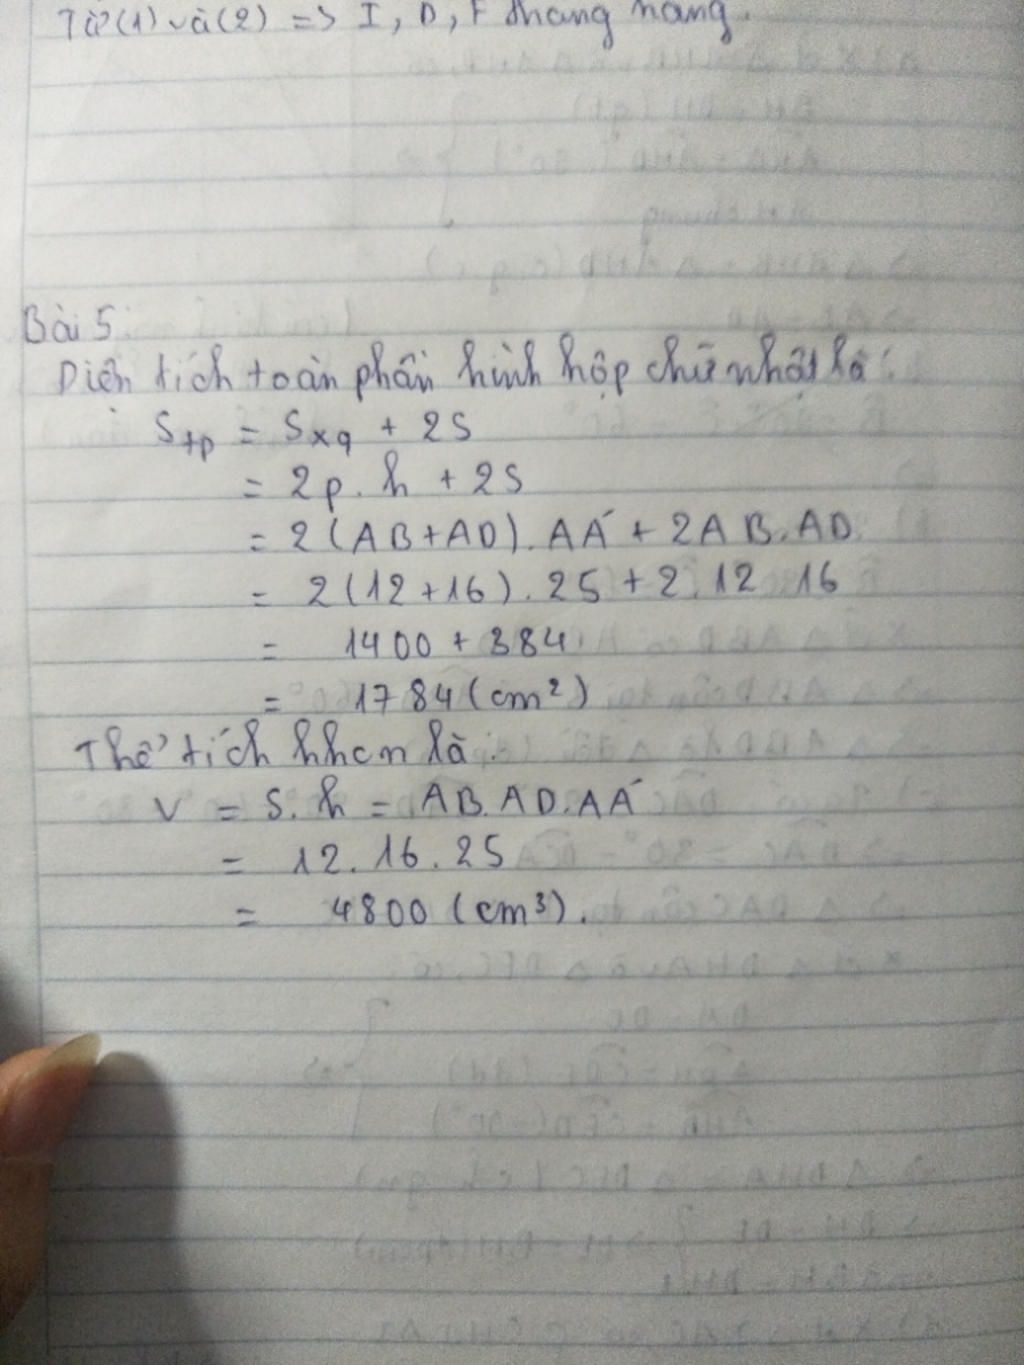 Từ (1) và (2) => I, D, F thẳng hàng.
Bài 5
Diện tích toàn phần hình hộp chữ nhật là:
Stp = Sxq + 2S
= 2p. h + 2S
= 2(AB+AD). AA' + 2AB.AD
= 2(12+16). 25 + 2. 12 16
= 1400 + 384
= 1784 (cm²)
Thể tích hhcn là:
V = S. h = AB. AD. AA'
= 12. 16. 25
= 4800 (cm³).